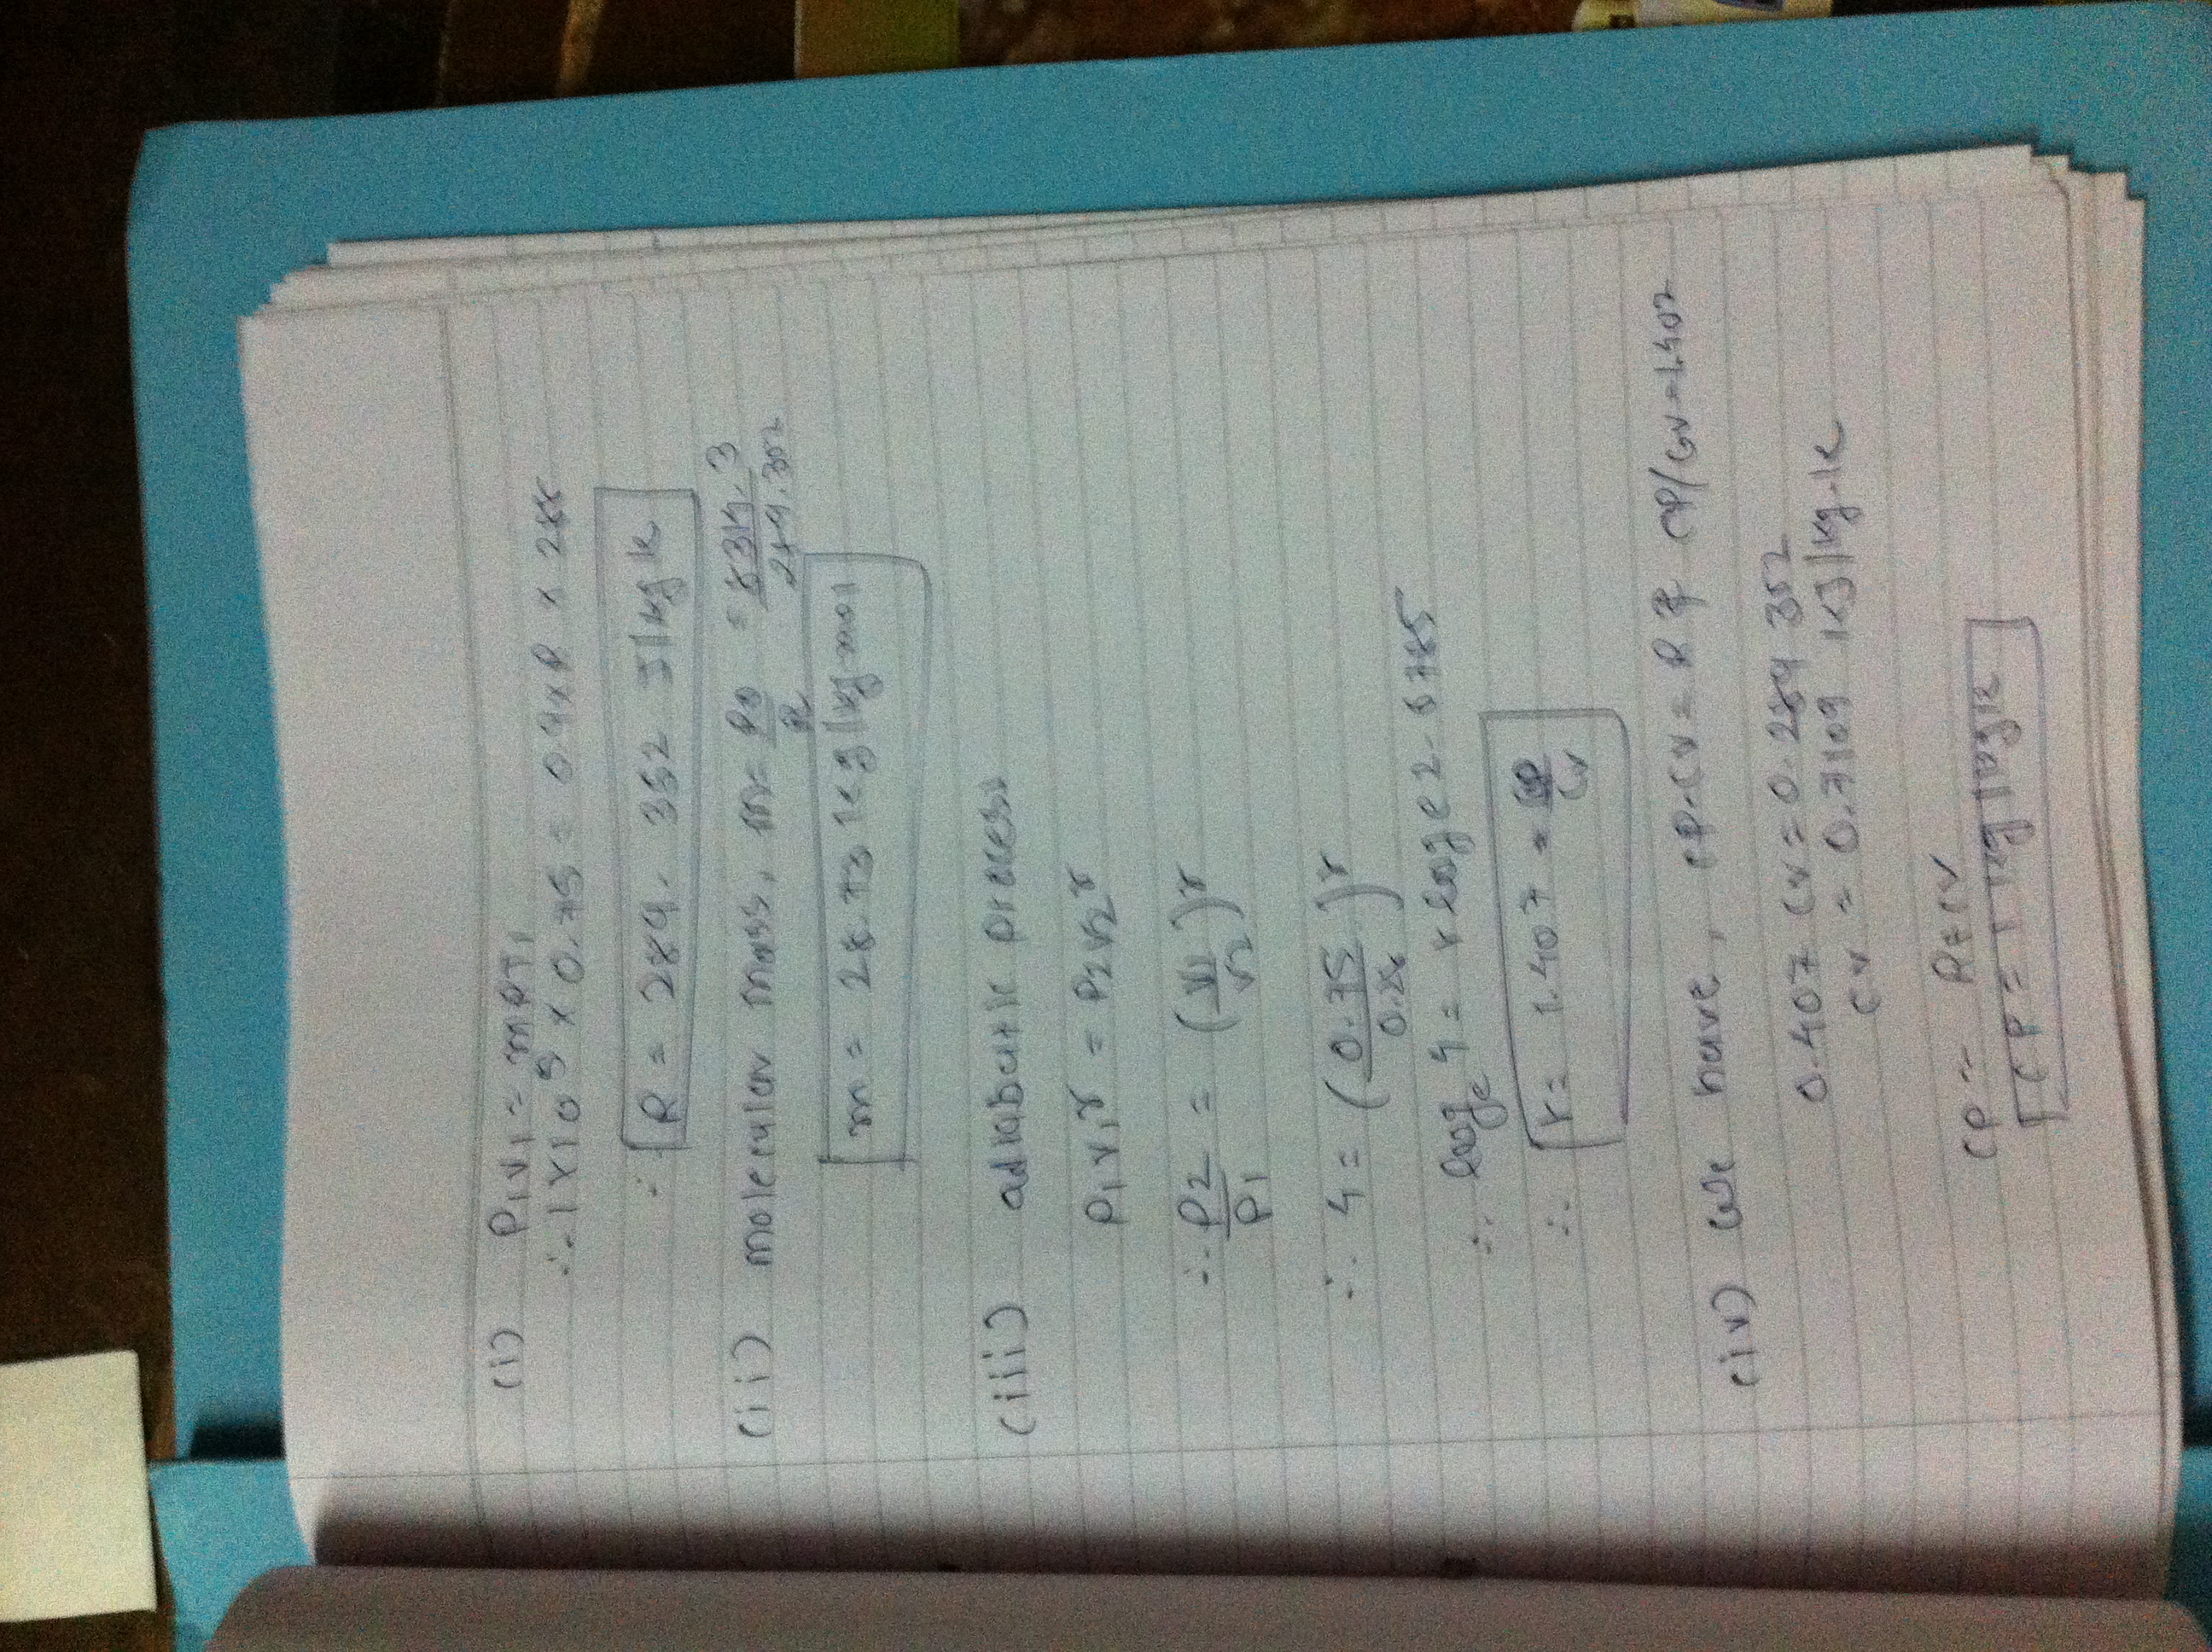 (i) P₁V₁ = mRT₁
∴ 1×10⁵ × 0.75 = 0.9×R × 288
∴ R = 289.352 J/kgk
(ii) molecular mass, m = R0/R = 8314.3/289.352
m = 28.73 kg/kg-mol
(iii) adiabatic process
P₁V₁ʳ = P₂V₂ʳ
∴ P2/P1 = (V1/V2)ʳ
∴ 4 = (0.75/0.28)ʳ
∴ logₑ 4 = r loge 2.6785
∴ r = 1.407 = CP/CV
(iv) We have, CP-CV = R & CP/CV=1.407
0.407 CV = 0.289 352
CV = 0.7109 KJ/kg.k
CP = R+CV
CP = 1 kg/kgk